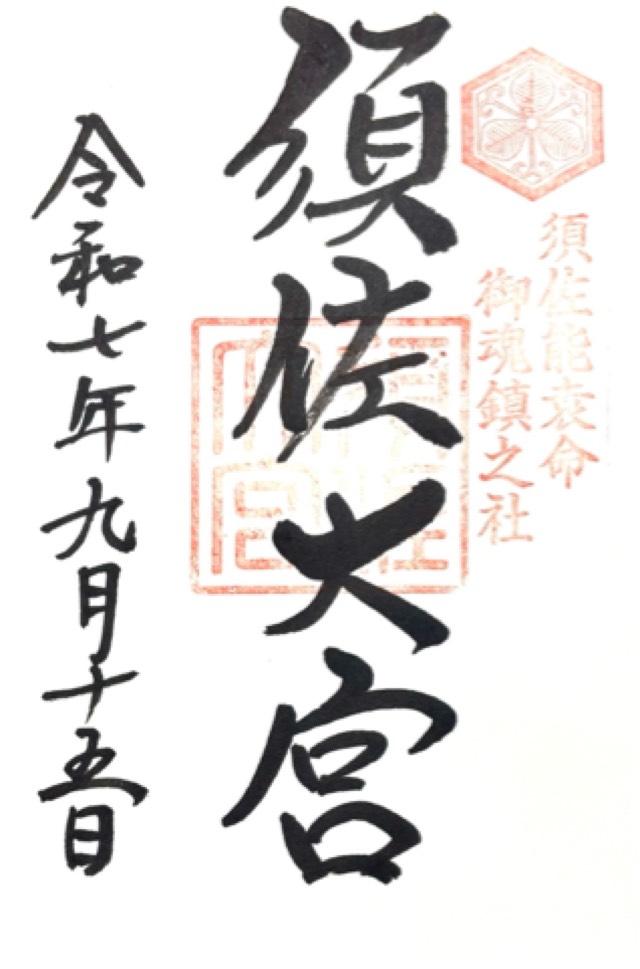 須佐能袁命
御魂鎮之社
須佐大宮
令和七年九月十五日